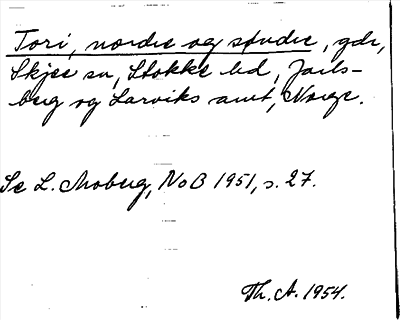 Tori, nordre og søndre, gdr,
Skjee sn, Stokke hd, Jarls-
berg og Larviks amt, Norge.
Se L. Moberg, NoB 1951, s. 27.
Th. A. 1954.